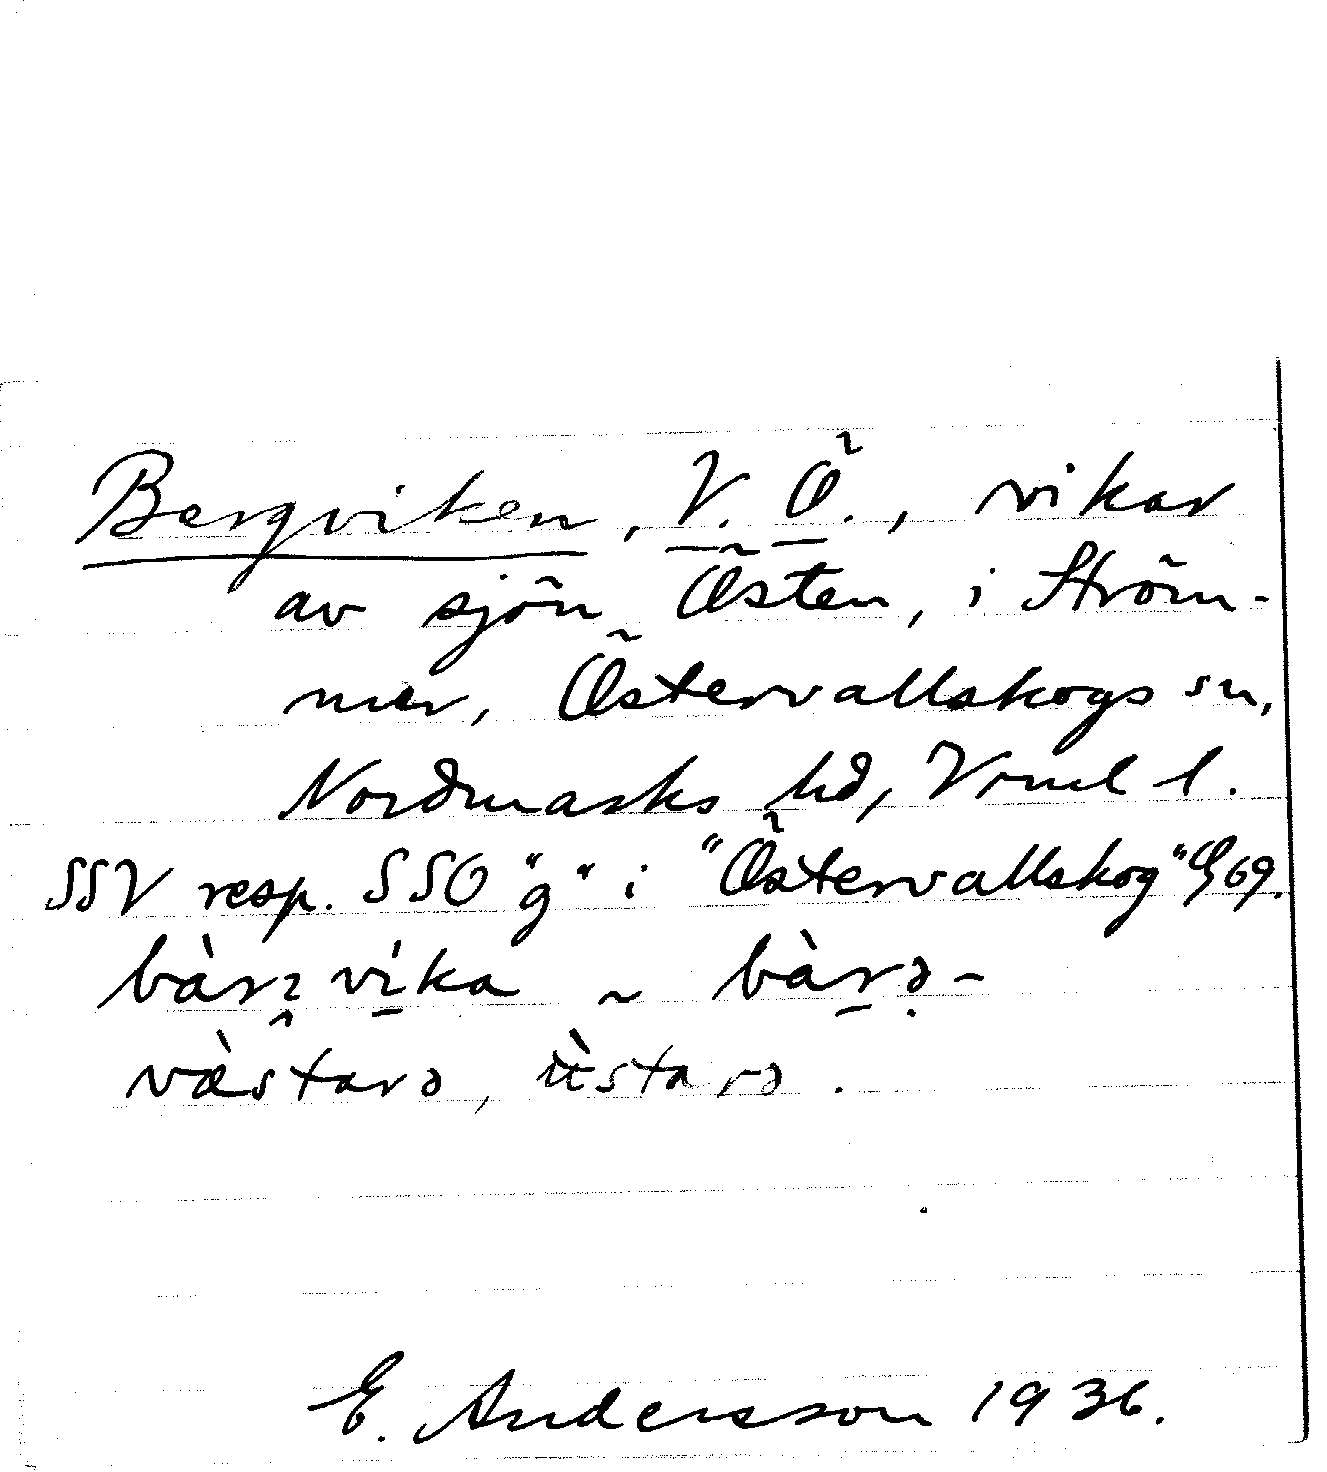 Bergviken, V. Ö., vikar
av sjön Östen, i Ström-
mer, Östervallskogs sn,
Nordmarks hd, Vrml l.
SSV resp. SSO "g" i "Östervallskog" G 69.
vika ~
E. Andersson 1936.